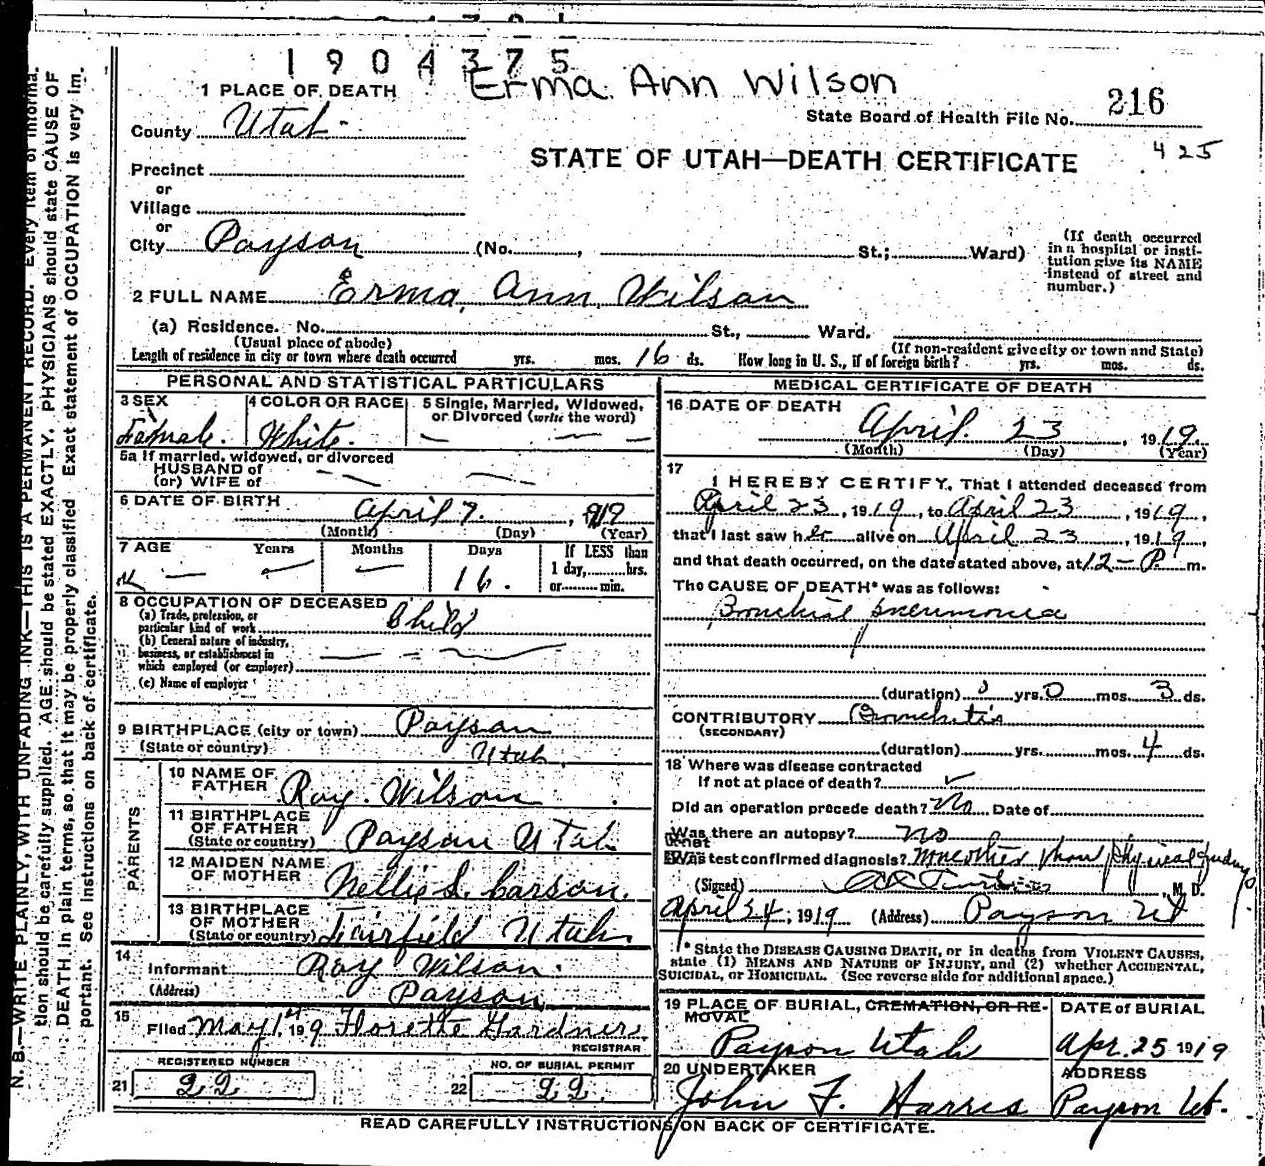 1904375
Erma Ann Wilson
1 PLACE OF DEATH
216
State Board of Health File No.
County Utah
425
STATE OF UTAH—DEATH CERTIFICATE
Precinct
or
Village
or
City Payson (No. , St.; Ward)
(If death occurred in a hospital or institution give its NAME instead of street and number.)
2 FULL NAME Erma Ann Wilson
(a) Residence. No. St., Ward.
(Usual place of abode) (If non-resident give city or town and State)
Length of residence in city or town where death occurred yrs. mos. 16 ds. How long in U. S., if of foreign birth? yrs. mos. ds.
PERSONAL AND STATISTICAL PARTICULARS
3 SEX 4 COLOR OR RACE 5 Single, Married, Widowed, or Divorced (write the word)
Female. White.
5a If married, widowed, or divorced
HUSBAND of
(or) WIFE of
6 DATE OF BIRTH April 7. , 1919
(Month) (Day) (Year)
7 AGE Years Months Days If LESS than
1 day, hrs.
16. or min.
8 OCCUPATION OF DECEASED
(a) Trade, profession, or particular kind of work Child
(b) General nature of industry, business, or establishment in which employed (or employer)
(c) Name of employer
9 BIRTHPLACE (city or town) Payson
(State or country) Utah.
PARENTS
10 NAME OF FATHER Ray Wilson
11 BIRTHPLACE OF FATHER (State or country) Payson Utah
12 MAIDEN NAME OF MOTHER Nellie S. Carson.
13 BIRTHPLACE OF MOTHER (State or country) Fairfield Utah.
14 Informant Ray Wilson.
(Address) Payson
15 Filed May 1st 1919 Florette Gardner
REGISTRAR
REGISTERED NUMBER NO. OF BURIAL PERMIT
21 22 22 22
MEDICAL CERTIFICATE OF DEATH
16 DATE OF DEATH
April 23 , 1919.
(Month) (Day) (Year)
17
I HEREBY CERTIFY, That I attended deceased from
April 23, 1919, to April 23, 1919,
that I last saw her alive on April 23, 1919,
and that death occurred, on the date stated above, at 12-P. m.
The CAUSE OF DEATH* was as follows:
Bronchial pneumonia
(duration) 0 yrs. 0 mos. 3 ds.
CONTRIBUTORY Bronchitis
(SECONDARY)
(duration) yrs. mos. 4 ds.
18 Where was disease contracted
If not at place of death?
Did an operation precede death? No Date of
Was there an autopsy? no
What test confirmed diagnosis? physical findings
(Signed) , M. D.
April 24, 1919 (Address) Payson Ut
* State the DISEASE CAUSING DEATH, or in deaths from VIOLENT CAUSES, state (1) MEANS AND NATURE OF INJURY, and (2) whether ACCIDENTAL, SUICIDAL, or HOMICIDAL. (See reverse side for additional space.)
19 PLACE OF BURIAL, CREMATION, OR REMOVAL DATE of BURIAL
Payson Utah Apr. 25 1919
20 UNDERTAKER ADDRESS
John F. Harris Payson Ut.
READ CAREFULLY INSTRUCTIONS ON BACK OF CERTIFICATE.
N. B.—WRITE PLAINLY, WITH UNFADING INK—THIS IS A PERMANENT RECORD. Every item of informa-
tion should be carefully supplied. AGE should be stated EXACTLY. PHYSICIANS should state CAUSE OF
DEATH in plain terms, so that it may be properly classified. Exact statement of OCCUPATION is very im-
portant. See instructions on back of certificate.